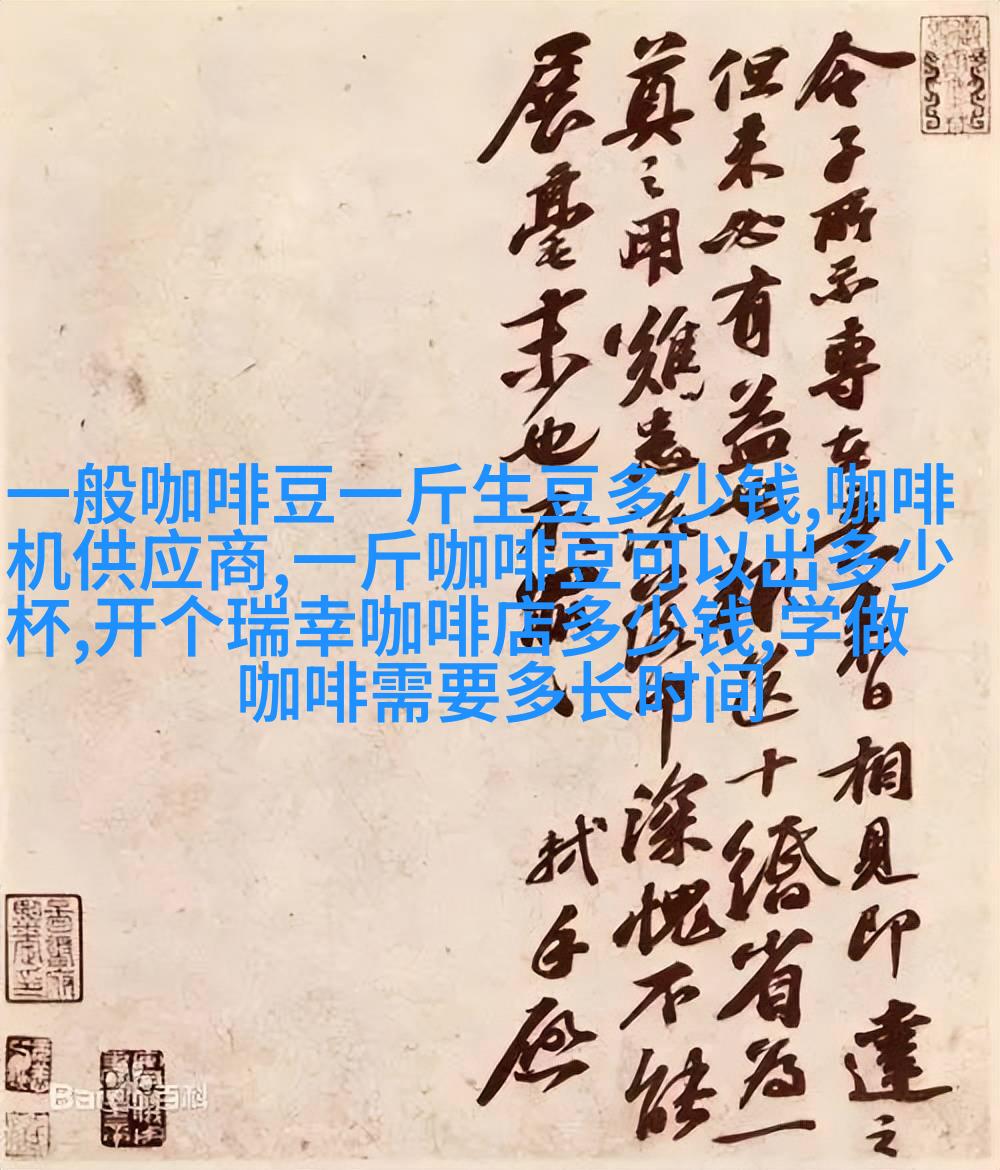 令子所示專在日相見即達之
但未必有益送十緡省為一
奠之用深愧不能
展毫末也
軾手啓
一般咖啡豆一斤生豆多少钱,咖啡
机供应商,一斤咖啡豆可以出多少
杯,开个瑞幸咖啡店多少钱,学做
咖啡需要多长时间
Bai 百科